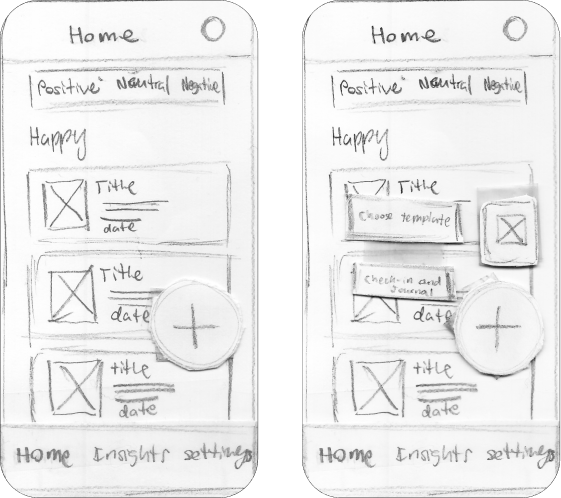 Home
Positive Neutral Negative
Happy
Title
date
Title
date
title
date
Home Insights settings
Home
Positive Neutral Negative
Happy
Title
Choose template
Check-in and
Journal
date
title
date
Home Insights settings